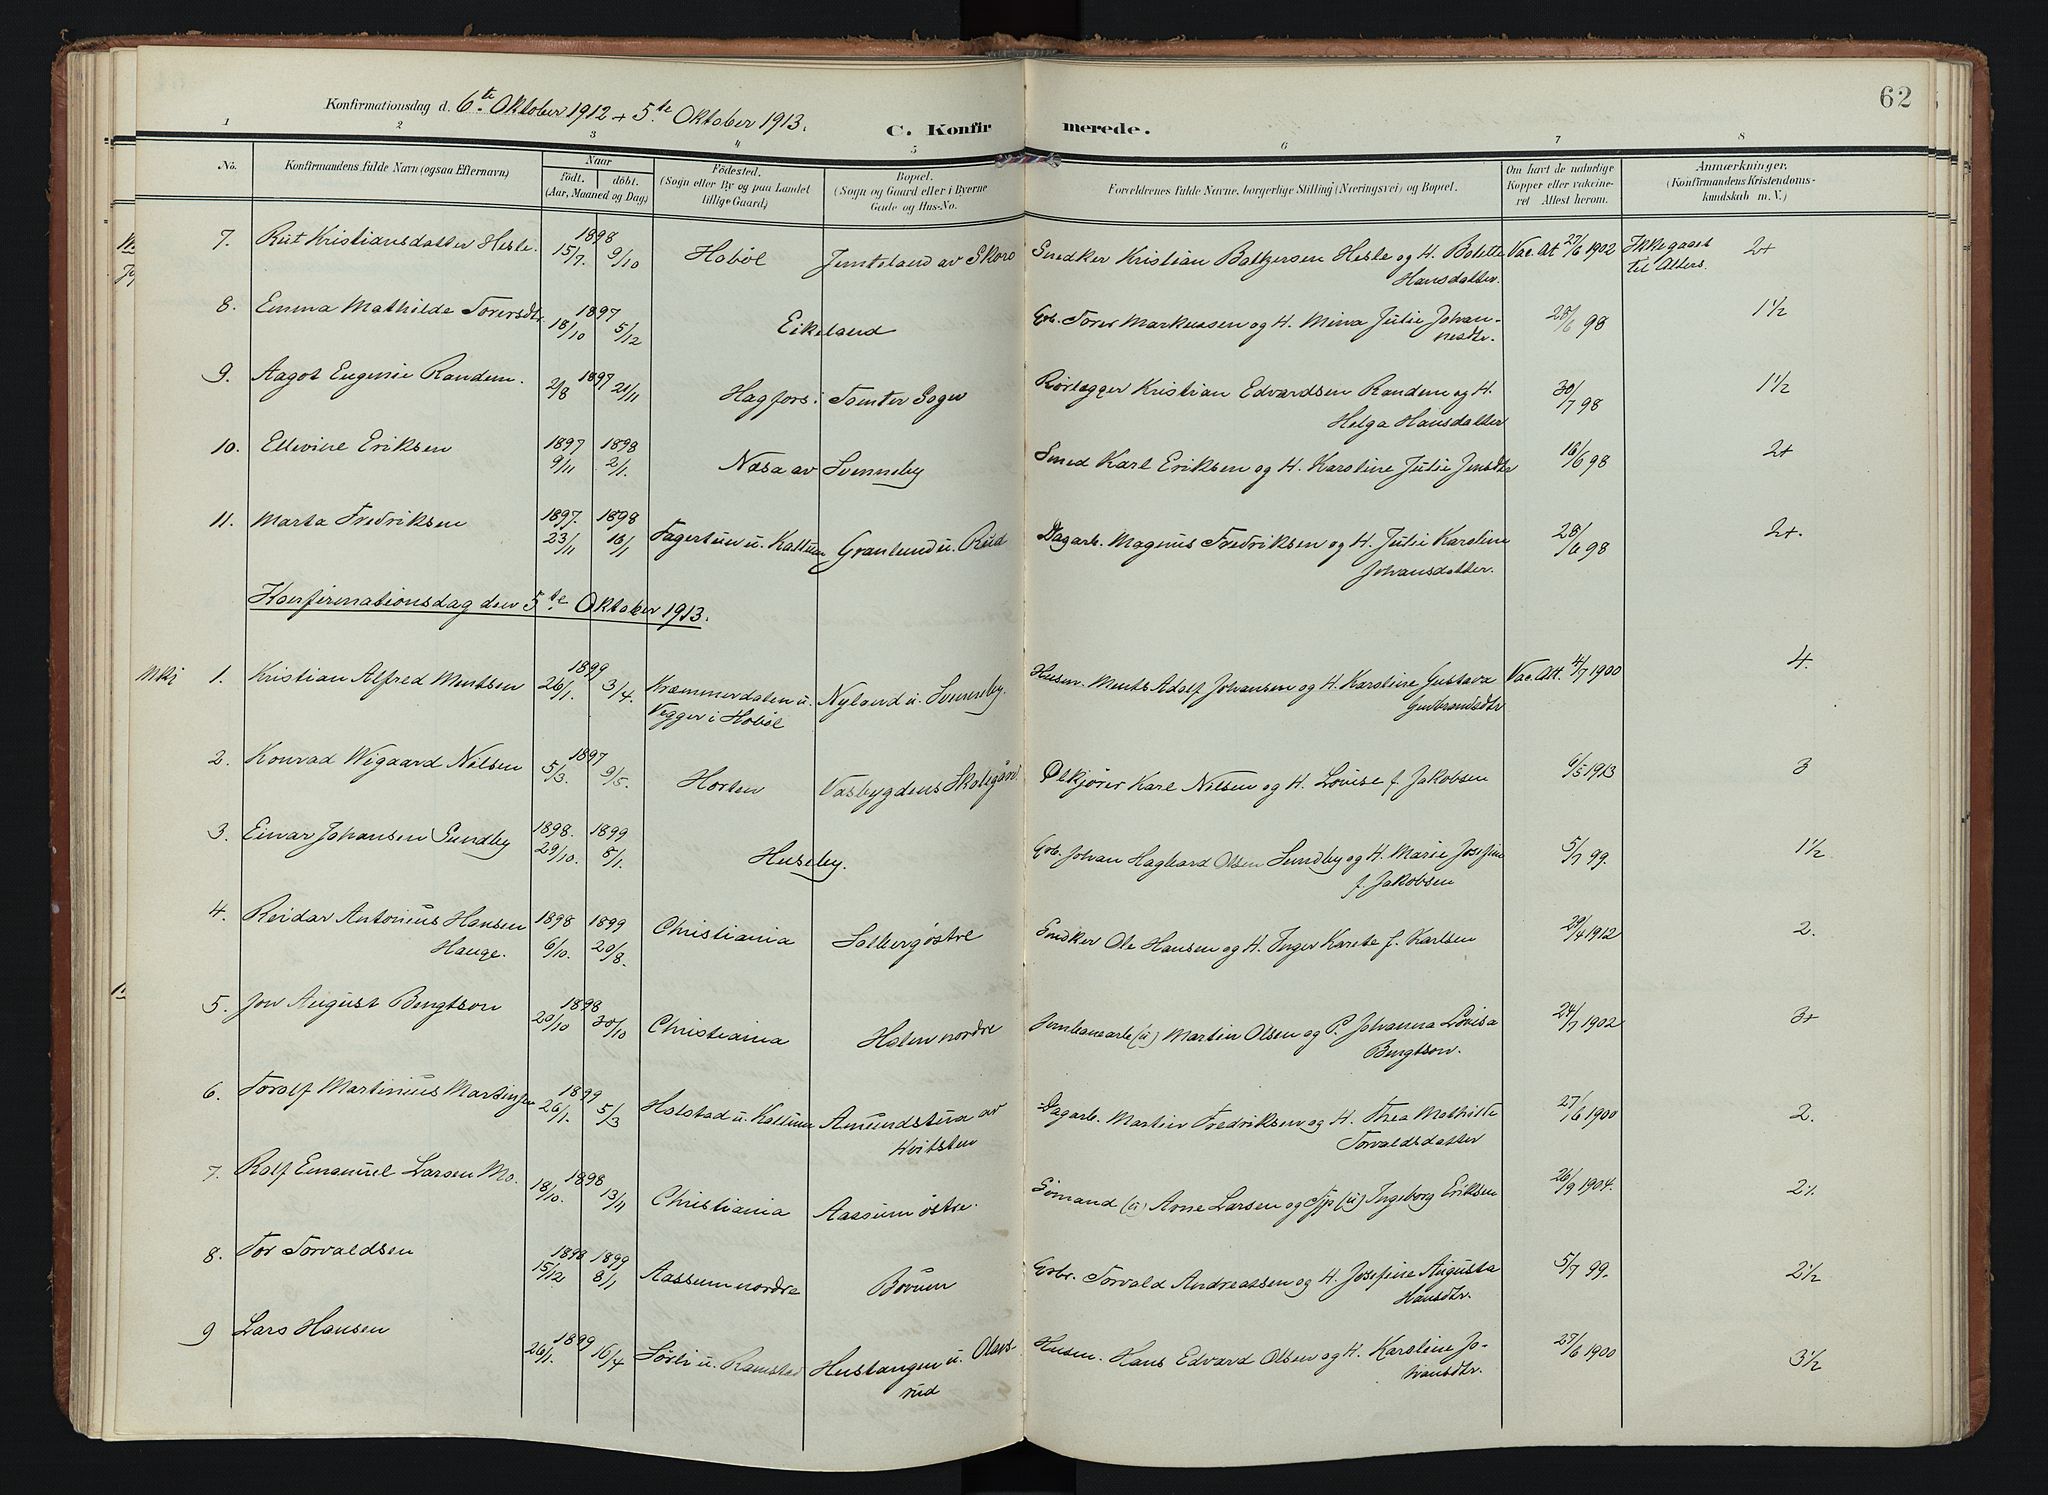 62
Konfirmationsdag d. 6te Oktober 1912 + 5te Oktober 1913.
C. Konfirmerede.
1 2 3 4 5 6 7 8
No. Konfirmandens fulde Navn (ogsaa Efternavn) Naar født. døbt. (Aar, Maaned og Dag) Fødested. (Sogn eller By og paa Landet tillige Gaard) Bopæl. (Sogn og Gaard eller i Byerne Gade og Hus-No. Forældrenes fulde Navne, borgerlige Stilling (Næringsvei) og Bopæl. Om havt de naturlige Kopper eller vakcineret Attest herom. Anmærkninger. (Konfirmandens Kristendomskundskab m. V.)
7. Rut Kristiansdatter Hesle. 1898 15/7. 9/10 Hobøl Jemteland av Skoro Snedker Kristian Baltzersen Hesle og H. Bolette Hansdatter. Vac. At 27/6 1902 Ikke gaaet til Alters. 2+
8. Emma Mathilde Torersdtr 1897 18/10 5/12 Eikeland Grb. Torer Markussen og H. Mina Julie Johannesdtr. 28/6 98 1 1/2
9. Aagot Eugenie Randem. 1897 2/8 21/11 Hagfors i Tomter Sogn Rørlægger Kristian Edvardsen Randem og H. Helga Hansdatter 30/7 98 1 1/2
10. Ellevine Eriksen 1897 9/11 1898 2/1. Næsa av Svenneby Smed Karl Eriksen og H. Karoline Julie Jensdtr 16/6 98 2+
11. Marta Fredriksen 1897. 23/11 1898 16/1 Fagertun u. Kattum Granlund u. Rud Dagarb. Magnus Fredriksen og H. Julie Karoline Johansdatter. 28/6 98 2+.
Konfirmationsdag den 5te Oktober 1913.
1. Kristian Alfred Mentsen 1899 26/1. 3/4. Kræmmerdalen u. Vegger i Hobøl Nyland u. Svenneby. Husm. Ments Adolf Johansen og H. Karoline Gustava Gulbrandsdtr Vac. At. 4/7 1900 4.
2. Konrad Wigaard Nilsen 1897 5/3. 9/5. Horten Vasbygdens Skolegård Ølkjører Karl Nilsen og H. Lovise f. Jakobsen 6/5 1913 3
3. Einar Johansen Sundby 1898. 29/10. 1899 8/1. Huseby. Grb. Johan Hagbard Olsen Sundby og H. Marie Josefine f. Jakobsen 5/7 99. 1 1/2
4. Reidar Antonius Hansen Hauge. 1898 6/10. 1899 20/8. Christiania Solberg østre Snedker Ole Hansen og H. Inger Karete f. Karlsen 29/4 1912 2.
5. Jon August Bengtson 1898 20/10 30/10 Christiania Holen nordre Jernbanearb (u) Martin Olsen og P. Johanna Lovisa Bengtson. 24/7 1902 3+
6. Torolf Martinius Martinsen 1899 26/1. 5/3 Holstad u. Kattum Amundstua av Hvitsten Dagarb. Martin Fredriksen og H. Thea Mathilde Torvaldsdatter 27/6 1900 2.
7. Rolf Emanuel Larsen Mo. 1898 18/10. 13/11 Christiania Aassum østre. Sømand (u) Arne Larsen og Tjp (u) Ingeborg Eriksen 26/9 1904. 2 1/2
8. Tor Torvaldsen 1898 15/12 1899 8/1 Aassum nordre Bovum Grbr. Torvald Andreassen og H. Josefine Augusta Hansdtr. 5/7 99. 2 1/2
9 Lars Hansen 1899 26/1. 16/4 Sørli u. Ramstad Hustangen u. Olavsrud Husm. Hans Edvard Olsen og H. Karoline Johansdtr. 27/6 1900 3 1/2